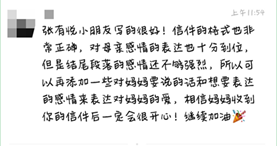 上午11:54
张有悦小朋友写的很好！信件的格式也非
常正确，对母亲感情的表达也十分到位，
但是结尾段落的感情还不够强烈，所以可
以再添加一些对妈妈要说的话和想要表达
的感情来表达对妈妈的爱，相信妈妈收到
你的信件后一定会很开心！继续加油🎉